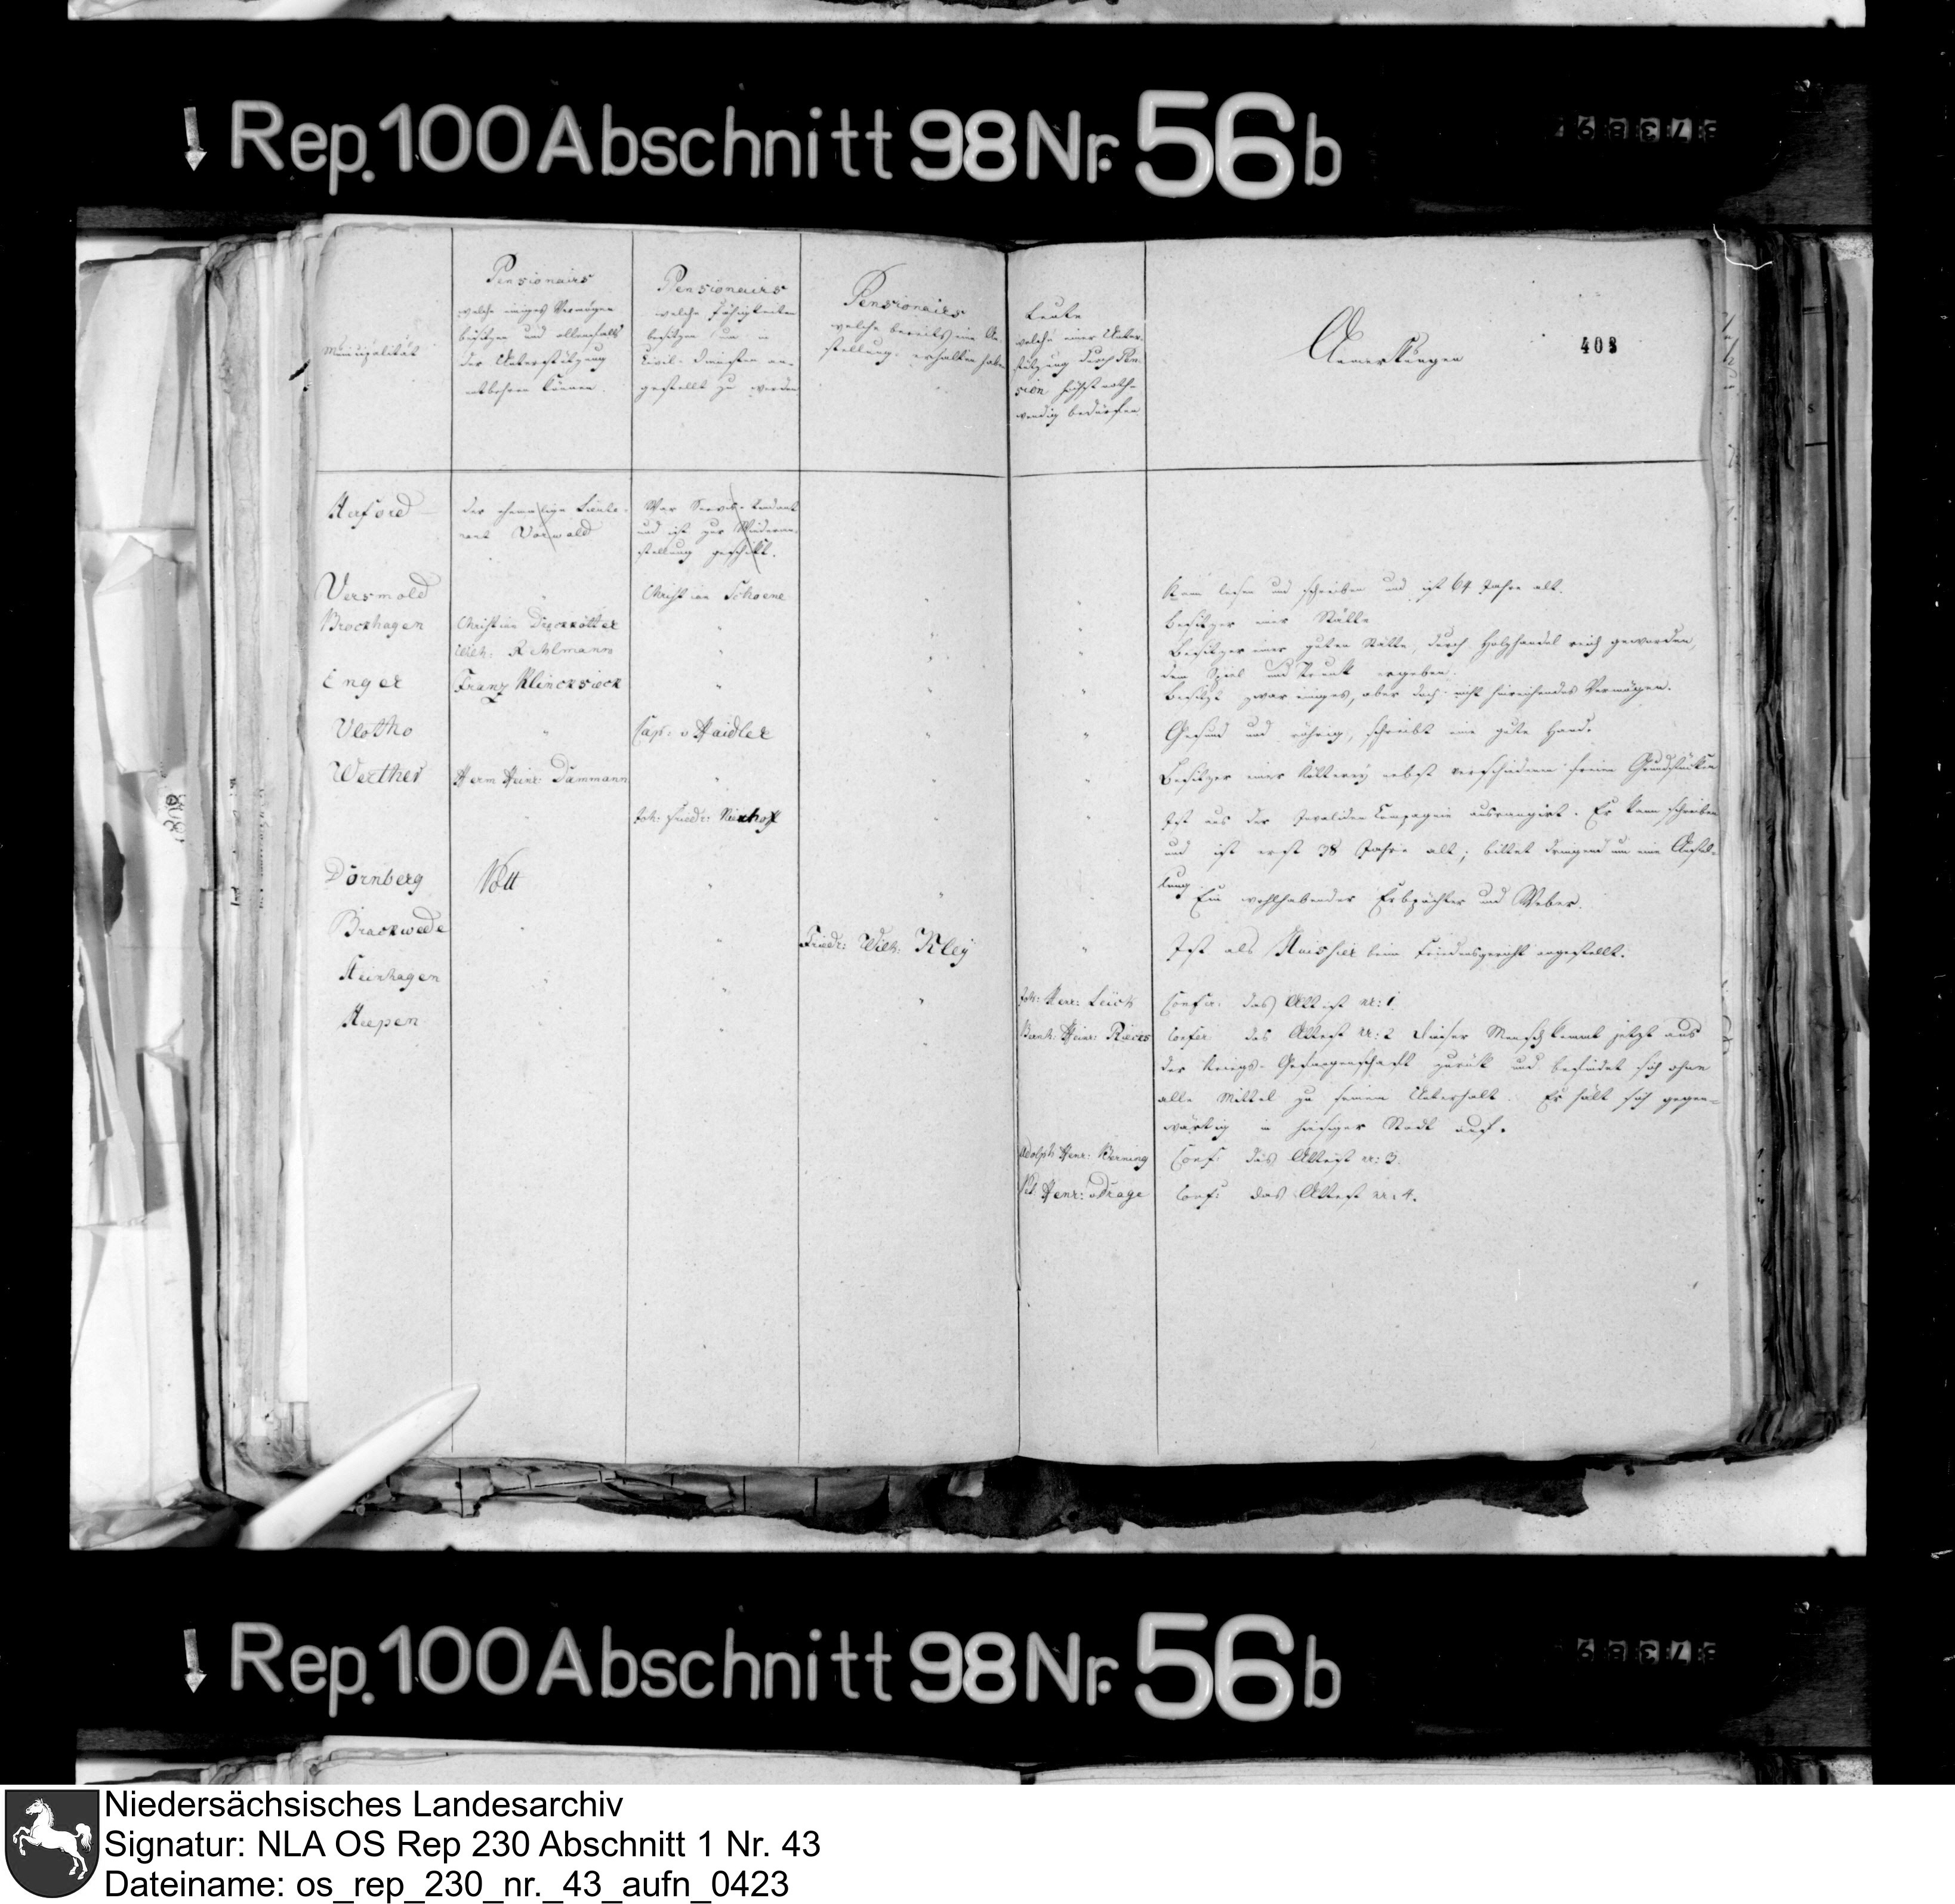 Rep. 100 Abschnitt 98 Nr. 56 b
408
Municipalität
Pensionairs
welche einiges Vermögen
besitzen und allenfalls
der Unterstützung
entbehren können.
Pensionairs
welche Fähigkeiten
besitzen um in
Civil-Diensten an-
gestellt zu werden
Pensionairs
welche bereits eine An-
stellung erhalten haben
Leute
welche einer Unter-
stützung durch Pen-
sion höchst noth-
wendig bedürfen
Anmerkungen
Herford
der ehemalige Lieute-
nant Vorwald
War Servis-Rendant
und ist zur Wiederan-
stellung geschikt.
Versmold " Christian Schoene " "
Kann lesen und schreiben und ist 64 Jahre alt.
Brockhagen Christian Dreckkötter " " "
Besitzer einer Stätte
Wilh: Kehlmann " " "
Besitzer einer guten Stätte, durch Holzhandel reich geworden,
dem Spiel und Trunk ergeben.
Enger Franz Klincksieck " " "
Besitzt zwar einiges, aber doch nicht hinreichendes Vermögen.
Vlotho " Cap: v Haidler " "
Gesund und rührig, schreibt eine gute Hand.
Werther Herm Heinr Dammann " " "
Besitzer einer Kötterey nebst verschiedenen freien Grundstücken
" Joh: Friedr: Nienhoff " "
Ist aus der Invaliden Compagnie ausrangirt. Er kann schreiben
und ist erst 38 Jahre alt; bittet dringend um eine Anstel-
lung
Dörnberg Nott " " "
Ein wohlhabender Erbpächter und Weber.
Brackwede " " Friedr: Wilh: Kley "
Ist als Huissier beim Friedensgericht angestellt.
Steinhagen " " "
Joh: Herr: Leick
Confer: das Attest nr: 1.
Heepen " " "
Bernh: Heinr: Riecks
Confer das Attest nr: 2 Dieser Mensch kommt jetzt aus
der Kriegs-Gefangenschaft zurück und befindet sich ohne
alle Mittel zu seinem Unterhalt. Er hält sich gegen-
wärtig in hiesiger Stadt auf.
Adolph Henr: Berning
Conf: das Attest nr: 3.
Henr: Drage
Conf: das Attest nr: 4.
Rep. 100 Abschnitt 98 Nr. 56 b
Niedersächsisches Landesarchiv
Signatur: NLA OS Rep 230 Abschnitt 1 Nr. 43
Dateiname: os_rep_230_nr._43_aufn_0423